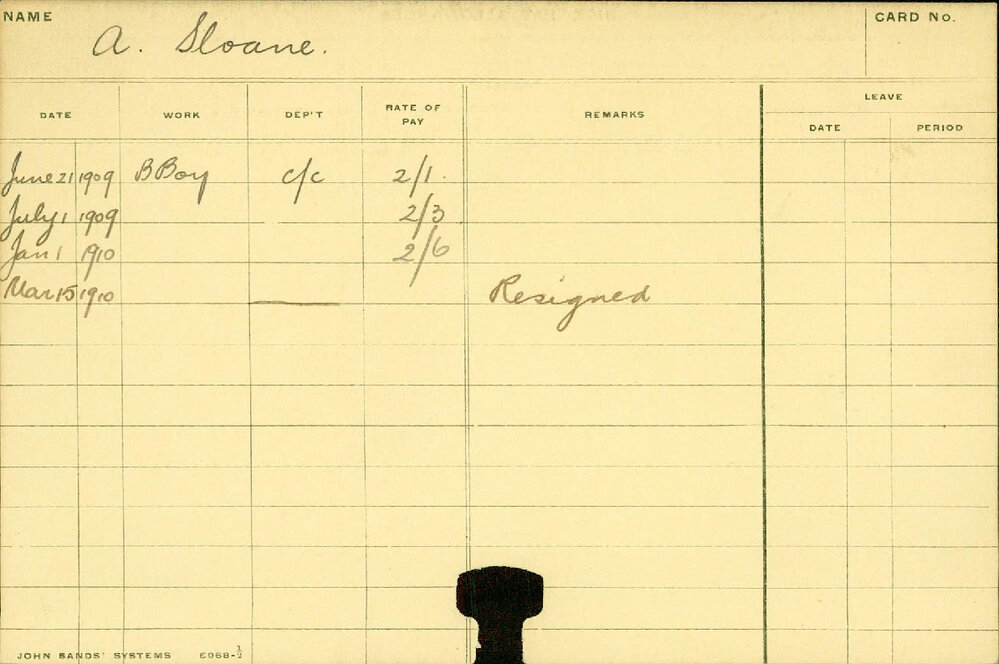 NAME A. Sloane. CARD No.
LEAVE
DATE WORK DEP'T RATE OF PAY REMARKS DATE PERIOD
June 21 1909 B Boy c/c 2/1.
July 1 1909 2/3
Jan 1 1910 2/6
Mar 15 1910 Resigned
JOHN SANDS' SYSTEMS